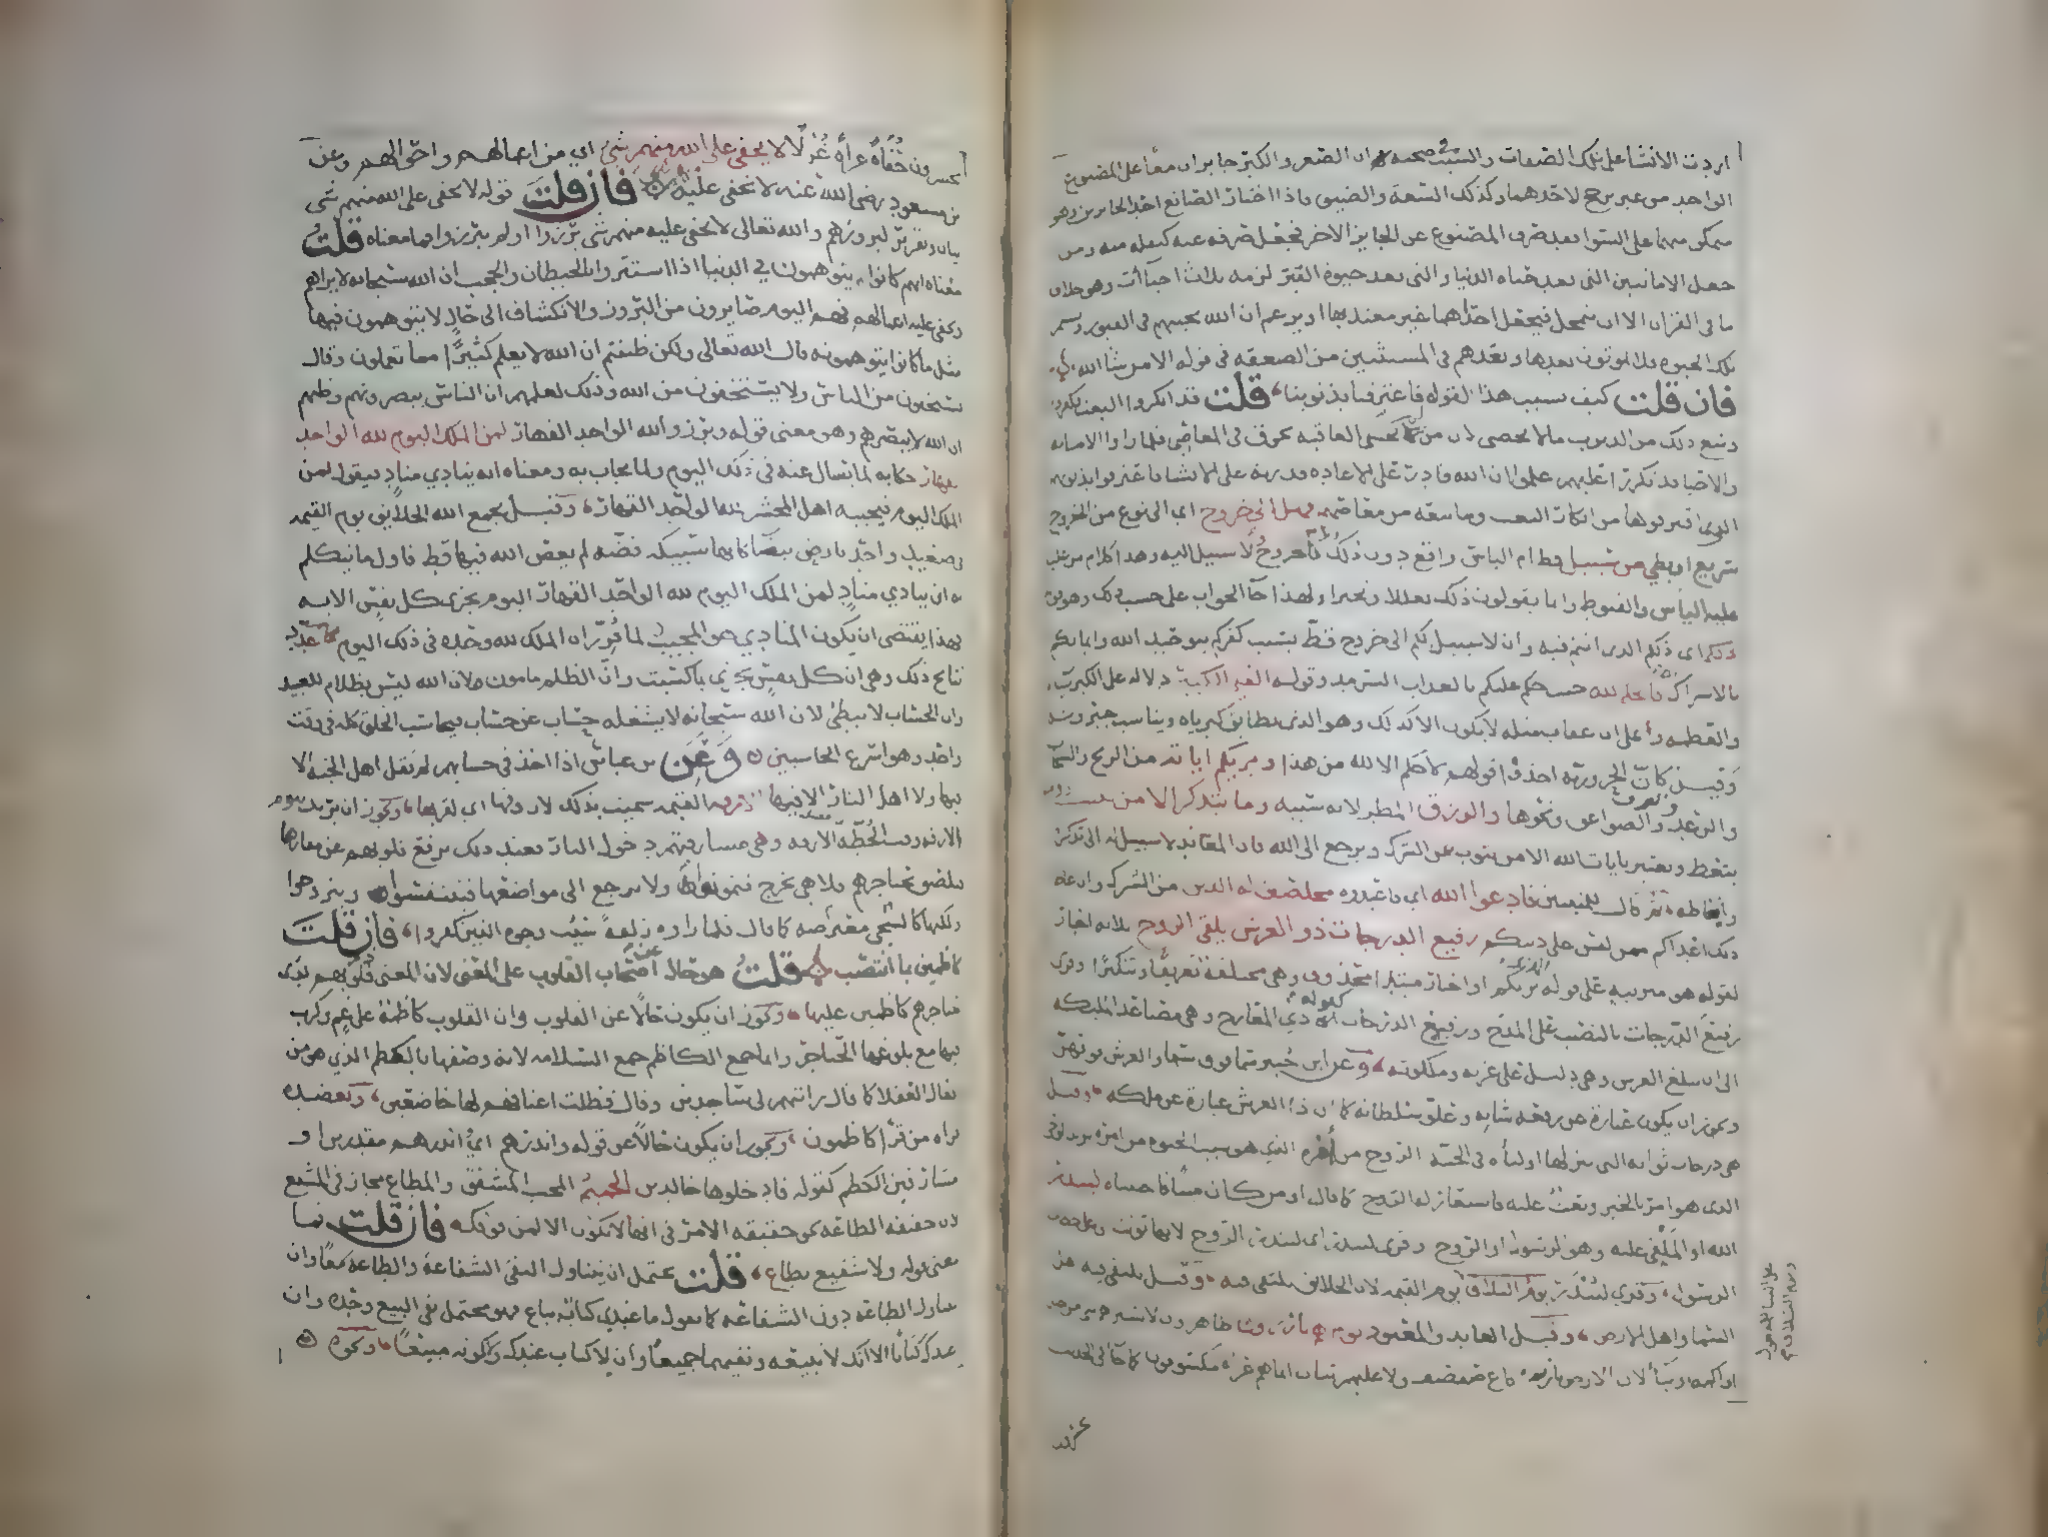 اردت الانشا على تلك الصفات والسبب في صحته ان الصغر والكبر جايزان معا على المصنوع
الواحد من غير ترجح لاحدهما وكذلك السعة والضيق فاذا اختار الصانع احد الجايزين وهو
متمكن منهما على السوا فقد صرف المصنوع عن الجايز الاخر فجعل صرفه عنه كنقله منه ومن
جعل الاماتتين التي بعد حياه الدنيا والتي بعد حيوة القبر لزمه ثلاث احياآت وهو خلاف
ما في القران الا ان يتمحل فيجعل احداها غير معتد بها او يزعم ان الله يحييهم في القبور وتستمر
تلك الحيوه فلا يموتون بعدها ويعدهم في المستثنين من الصعقه في قوله الا من شا الله
فان قلت كيف تسبب هذا لقوله فاعترفنا بذنوبنا قلت قد انكروا البعث فكفروا
وتبع ذلك من الذنوب مالا يحصى لان من لم يخش العاقبه تخرق في المعاصي فلما راوا الاماته
والاحيا قد تكررا عليهم علموا ان الله قادر على الاعاده قدرته على الانشا فاعترفوا بذنوبهم
التي اقترفوها من انكار البعث وما تبعه من معاصيهم فهل الى خروج اي الى نوع من الخروج
سريع او بطي من سبيل قط ام الياس واقع دون ذلك فلا خروج ولا سبيل اليه وهذا كلام من غلب
عليه الياس والقنوط وانما يقولون ذلك تعللا وتحيرا ولهذا جآ الجواب على حسب ذلك وهو قوله
ذلكم اي ذلكم الذي انتم فيه وان لا سبيل لكم الى خروج قط بسبب كفركم بتوحيد الله وايمانكم
بالاشراك به فالحكم لله حيث حكم عليكم بالعذاب السرمد وقوله العلي الكبير دلاله على الكبريا
والعظمه وعلى ان عقاب مثله لا يكون الا كذلك وهو الذي يطابق كبرياه ويناسب جبروته
وقيل كان الحرورية اخذوا قولهم لا حكم الا لله من هذا يريكم اياته من الريح والسحاب
والرعد والبرق والصواعق ونحوها والرزق المطر لانه سببه وما يتذكر الا من ينيب وما
يتعظ ويعتبر بايات الله الا من يتوب عن الشرك ويرجع الى الله فان المعاند لا سبيل له الى تذكر
واتعاظ ثم قال للمنيبين فادعوا الله اي فاعبدوه مخلصين له الدين من الشرك وان غاظ
ذلك اعداكم ممن ليس على دينكم رفيع الدرجات ذو العرش يلقي الروح ثلاثه اخبار
لقوله هو مترتبه على قوله الذي يريكم او اخبار مبتدا محذوف وهي مختلفة تعريفا وتنكيرا وقرى
رفيع الدرجات بالنصب على المدح ورفيع الدرجات كقوله ذي المعارج وهي مصاعد الملئكه
الى ان تبلغ العرش وهي دليل على عزته وملكوته وعن ابن جبير سما فوق سما والعرش فوقهن
ويجوز ان يكون عبارة عن رفعه شانه وعلو سلطانه كما ان ذا العرش عبارة عن ملكه وقيل
هي درجات ثوابه التي ينزلها اولياه في الجنة الروح من امره الذي هو سبب الحيوه من امره يريد الوحي
الذي هو امر بالخير وبعث عليه فاستعار له الروح كما قال او من كان ميتا فاحييناه لينذر
الله او الملقى عليه وهو الرسول او الروح وقرى لتنذر اي لتنذر الروح لانها تونث وعلى خطاب
الرسول وقري لينذر يوم التلاق يوم القيمه لان الخلايق يلتقي فيه وقيل يلتقي فيه اهل
السما واهل الارض وقيل العابد والمعبود يوم هم بارزون ظاهرون لا يسترهم شي من جبل
او اكمه او بنا لان الارض بارزه قاع صفصف ولا عليهم ثياب انما هم عراه مكشوفون كما جا في الحديث
يحشرون حفاة عراة غرلا لا يخفى على الله منهم شي اي من اعمالهم واحوالهم وعن
بن مسعود رضي الله عنه لا يخفى عليه فان قلت قوله لا يخفى على الله منهم شي
بيان وتقرير لبروزهم والله تعالى لا يخفى عليه منهم شي برزوا او لم يبرزوا فما معناه قلت
معناه انهم كانوا يتوهمون في الدنيا اذا استتروا بالحيطان والحجب ان الله سبحانه لا يراهم
ويخفى عليه اعمالهم فهم اليوم صايرون من البروز والانكشاف الى حال لا يتوهمون فيها
مثل ما كانوا يتوهمونه قال الله تعالى ولكن ظننتم ان الله لا يعلم كثيرا مما تعملون وقال
يستخفون من الناس ولا يستخفون من الله وذلك لعلمهم ان الناس يبصرونهم وظنهم
ان الله لا يبصرهم وهو معنى قوله وبرزوا لله الواحد القهار لمن الملك اليوم لله الواحد
القهار حكايه لما يسال عنه في ذلك اليوم ولما يجاب به ومعناه انه ينادي مناد فيقول لمن
الملك اليوم فيجيبه اهل المحشر لله الواحد القهار وقيل يجمع الله الخلايق يوم القيمه
في صعيد واحد بارض بيضا كانها سبيكه فضه لم يعص الله فيها قط فاول ما يتكلم
به ان ينادي مناد لمن الملك اليوم لله الواحد القهار اليوم تجزى كل نفس الايه
فهذا يقتضي ان يكون المنادي هو المجيب لما قرر ان الملك لله وحده في ذلك اليوم عدد
نتايج ذلك وهي ان كل نفس تجزى بما كسبت وان الظلم مامون لان الله ليس بظلام للعبيد
وان الحساب لا يبطئ لان الله سبحانه لا يشغله حساب عن حساب فيحاسب الخلق كله في وقت
واحد وهو اسرع الحاسبين وعن بن عباس اذا اخذ في حسابهم لم يقل اهل الجنة الا
فيها ولا اهل النار الا فيها الازفه القيمه سميت بذلك لازوفها اي لقربها ويجوز ان يريد بيوم
الازفه وقت الخطة الازفه وهي مشارفتهم دخول النار فعند ذلك ترتفع قلوبهم عن مقارها
فتلصق بحناجرهم فلا هي تخرج فيموتوا ولا ترجع الى مواضعها فيتنفسوا ويتروحوا
ولكنها كالشجى معترضه كما قال فلما راوه زلفة سيئت وجوه الذين كفروا فان قلت
كاظمين بما انتصب قلت هو حال عن اصحاب القلوب على المعنى لان المعنى اذ قلوبهم لدى
حناجرهم كاظمين عليها ويجوز ان يكون حالا عن القلوب وان القلوب كاظمة على غم وكرب
فيها مع بلوغها الحناجر وانما جمع الكاظم جمع السلامه لانه وصفها بالكظم الذي هو من
افعال العقلا كما قال رايتهم لي ساجدين وقال فظلت اعناقهم لها خاضعين وتعضده
قراه من قرا كاظمون ويجوز ان يكون حالا عن قوله وانذرهم اي انذرهم مقدرين او
مشارفين الكظم كقوله فادخلوها خالدين الحميم المحب المشفق والمطاع مجاز في المشفع
لان حقيقه الطاعه نحو حقيقه الامر في انها لا تكون الا لمن فوقك فان قلت فما
معنى قوله ولا شفيع يطاع قلت يحتمل ان يتناول النفي الشفاعة والطاعة معا وان
يتناول الطاعة دون الشفاعة كما تقول ما عندي كتاب يباع فهو محتمل نفي البيع وحده وان
عندك كتابا الا انك لا تبيعه ونفيهما جميعا وان لا كتاب عندك ولا كونه مبيعا ونحوه